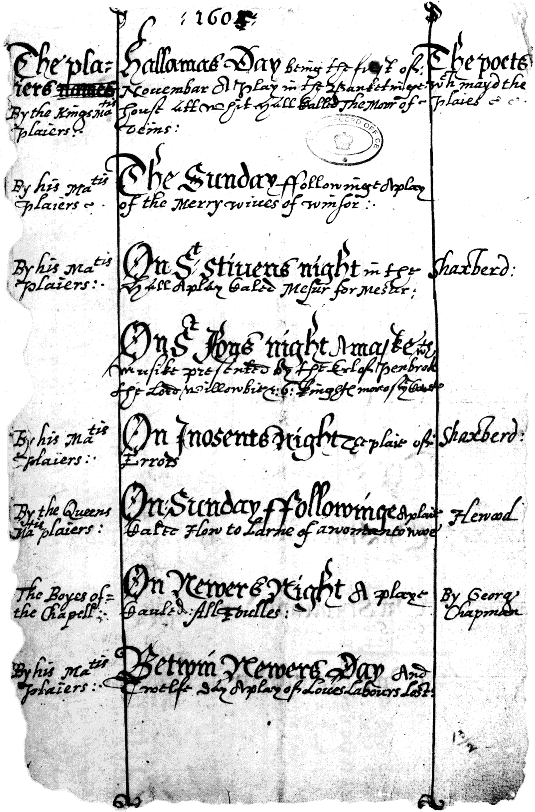 : 1605 :
The plaiers names
By the Kings Ma tis plaiers :
Hallamas Day being the first of
Novembar A play in the Banketinge
house att whit Hall Called The Moor of
Venis :
The poets wch mayd the plaies
By his Ma tis plaiers .
The Sunday ffollowinge A play
of the Merry wiues of winsor :
By his Ma tis plaiers :
On St Stiuens night in the
Hall A play Caled Mesur for Mesur :
Shaxberd :
On St Jons night A maske wth
musike presented by the Erl of Penbrok
the Lord Willowbie & 6 Knights more of the
By his Ma tis plaiers :
On Inosents Night The plaie of
Errors
Shaxberd :
By the Queens Ma tis plaiers :
On Sunday ffollowinge A plaie
Caled How to Larne of a woman to wooe
Hewood
The Boyes of the Chapell :
On Newers Night A playe
Cauled : All Foulles :
By Georg Chapman
By his Ma tis plaiers :
Betwin Newers Day And
Twelfe day A play of Loues Labours Lost :